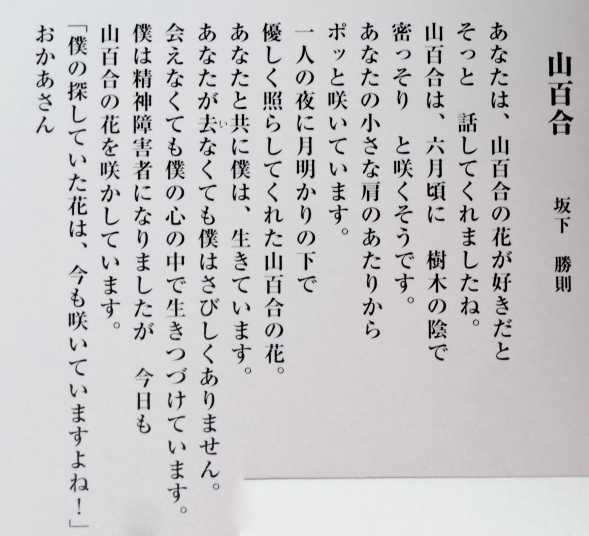 山百合
坂下　勝則
あなたは、山百合の花が好きだと
そっと　話してくれましたね。
山百合は、六月頃に　樹木の陰で
密っそり　と咲くそうです。
あなたの小さな肩のあたりから
ポッと咲いています。
一人の夜に月明かりの下で
優しく照らしてくれた山百合の花。
あなたと共に僕は、生きています。
あなたが去なくても僕はさびしくありません。
い
会えなくても僕の心の中で生きつづけています。
僕は精神障害者になりましたが　今日も
山百合の花を咲かしています。
「僕の探していた花は、今も咲いていますよね！」
おかあさん